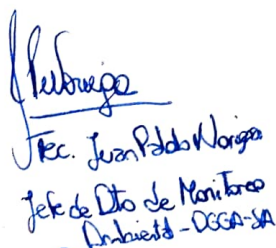 Tec. Juan Pablo Noriega
Jefe de Dto de Monitoreo
Ambiental - DGGA-SA